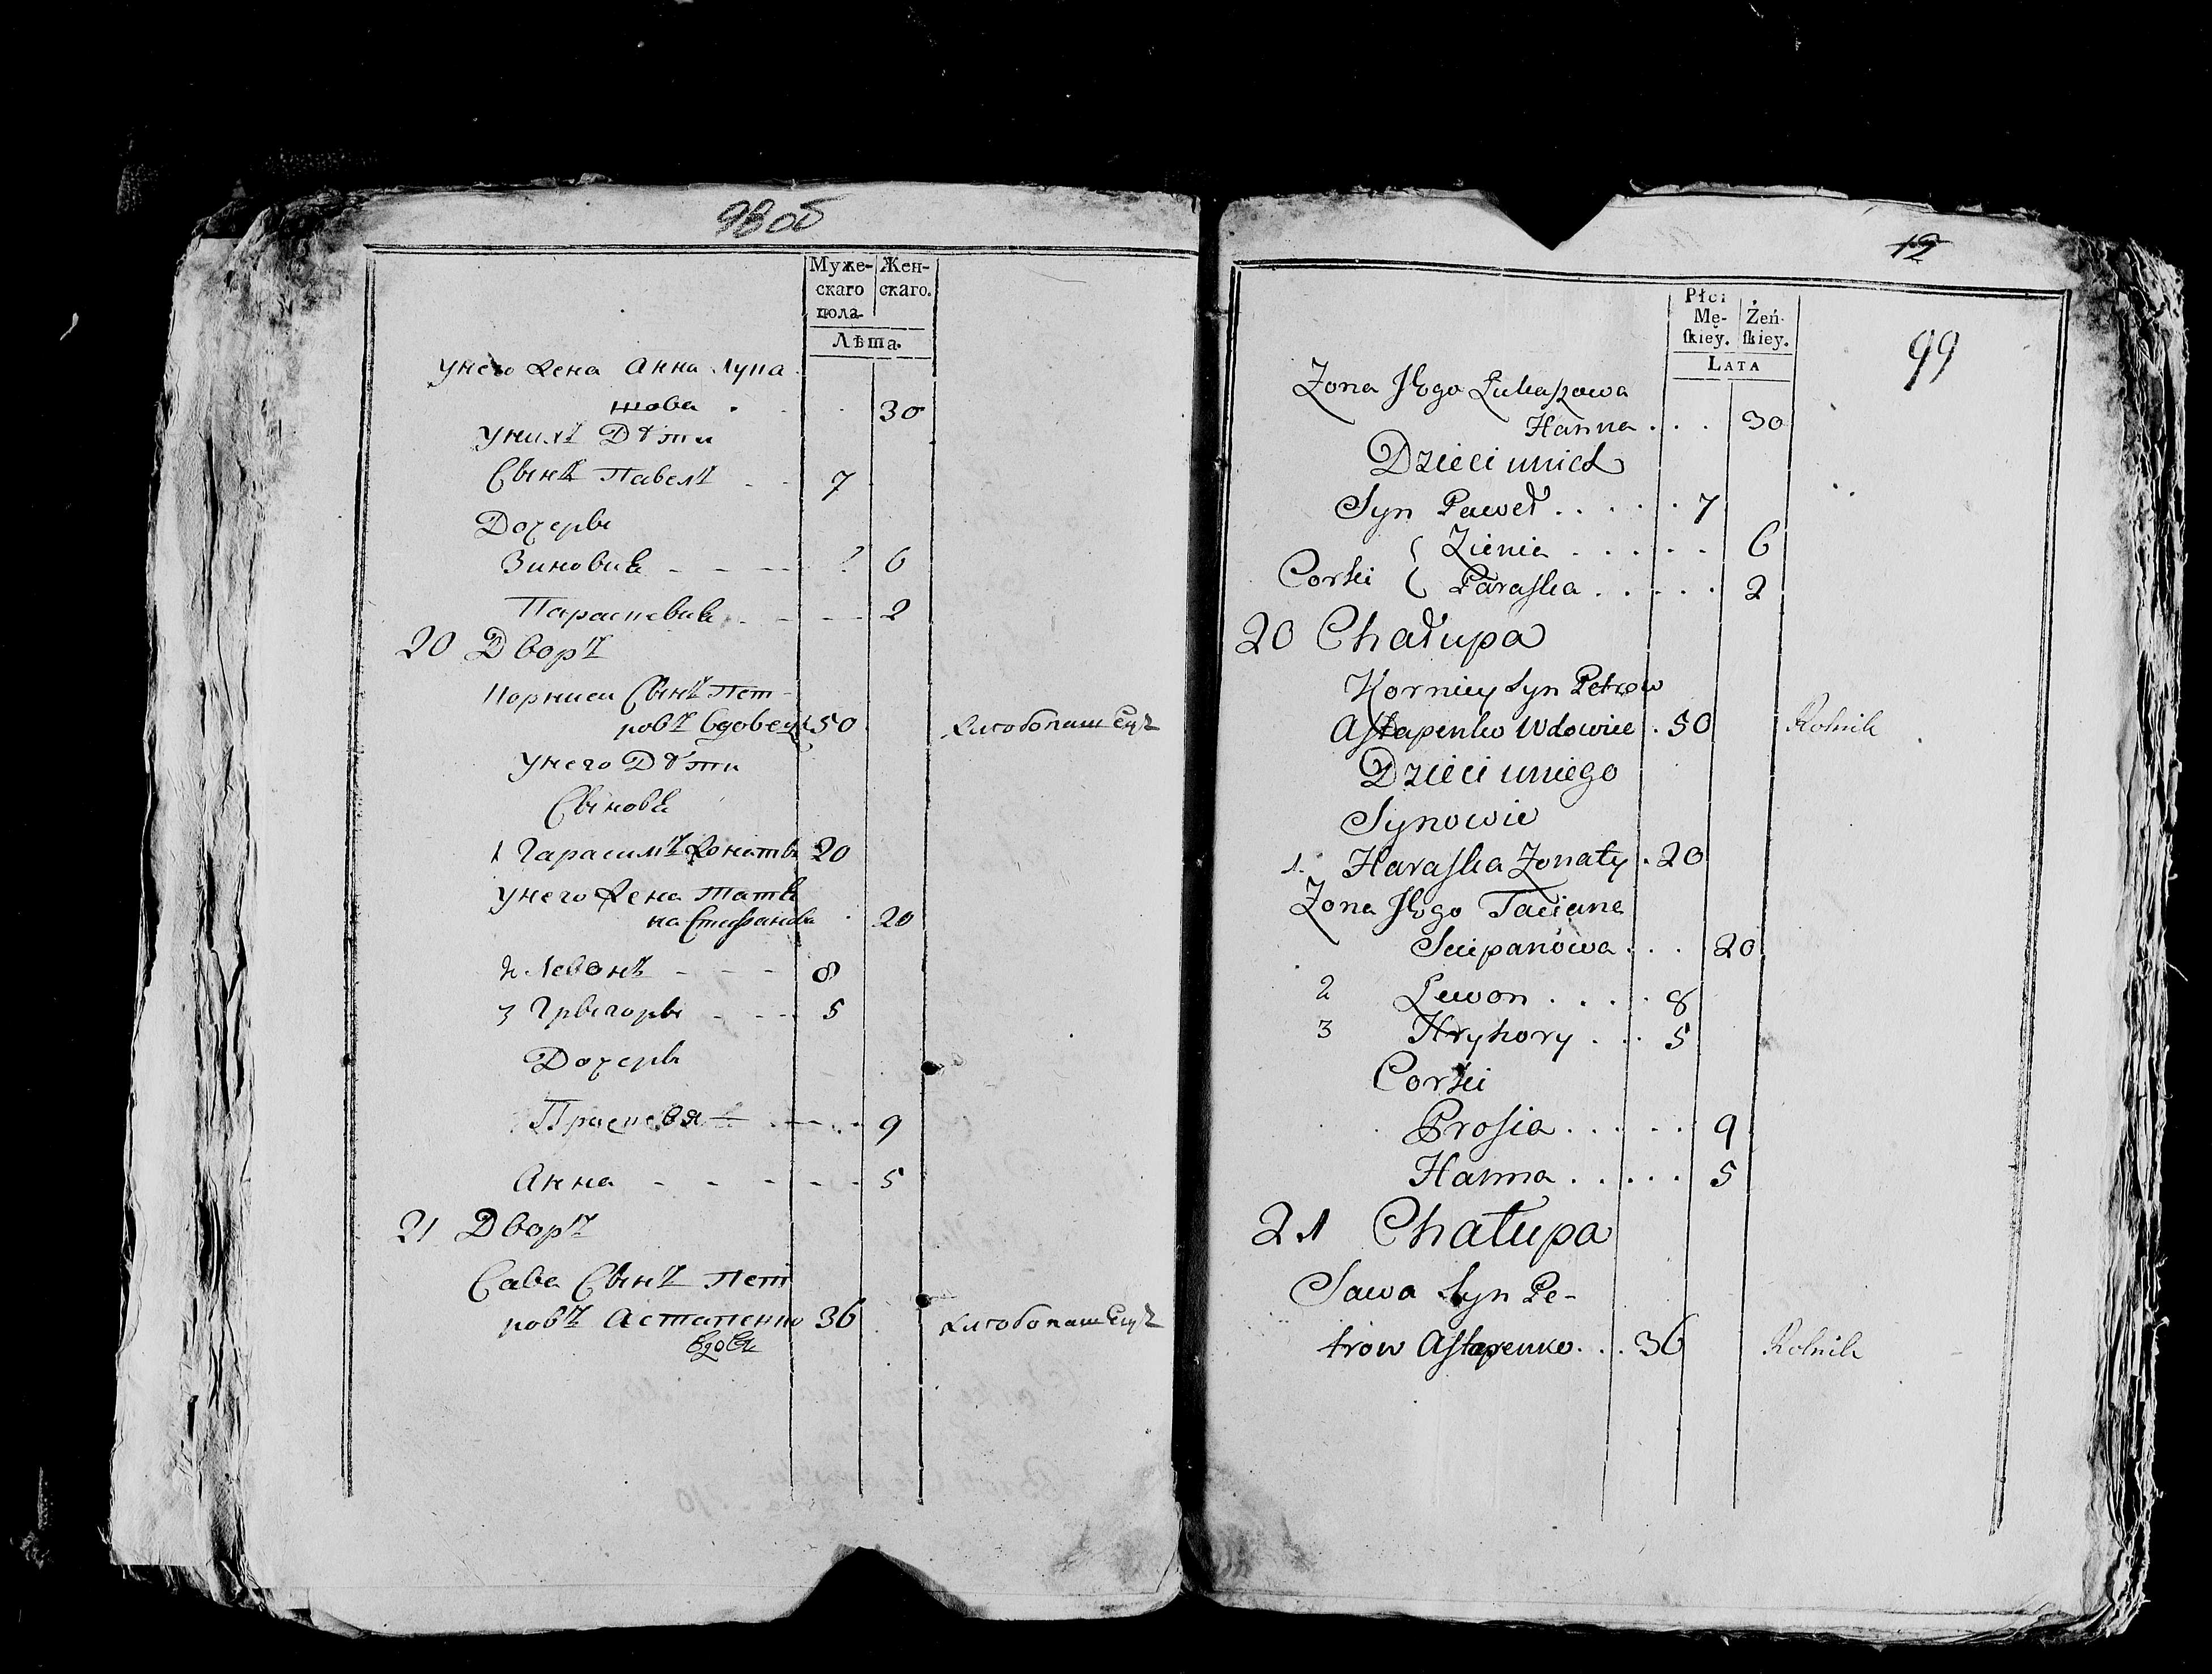 98 об
Муже-
скаго
пола.
Жен-
скаго.
Лѣта.
унего жена Анна Лука
шова . 30
унихъ Дѣти
Сынъ Павелъ - - 7
Дочеры
Зиновия - - - - 6
Параскевия - - - - 2
20 Дворъ
Корней Сынъ Пет-
ровъ вдовецъ 50 хлѣбопашецъ
унего Дѣти
Сыновя
1 Гарасимъ жонаты 20
унего жена Татя
на Стифанова 20
2 Левонъ - - - 8
3 Грыгоры - - - 5
Дочеры
Праскевя - - - 9
Анна - - - - - - 5
21 Дворъ
Сава Сынъ Пет
ровъ Астапенко 36 хлѣбопашецъ
вдовъ
12
99
Płci
Mę-
ſkiey.
Żeń-
ſkiey.
LATA
Zona Jego Łukaszowa
Hanna . . . 30
Dzieci unich
Syn Paweł . . . . . 7
Corki { Zienia . . . . . 6
Paraska . . . . . 2
20 Chałupa
Korniey Syn Petrow
Astapenko Wdowiec . 50 Rolnik
Dzieci uniego
Synowie
1. Haraska Zonaty . 20
Zona Jego Taciana
Sciepanowa . . . 20
2 Lewon . . . . 8
3 Hryhory . . . 5
Corki
Prosia . . . . . . 9
Hanna . . . . . 5
21 Chałupa
Sawa Syn Pe-
trow Astapenko . . . 36 Rolnik